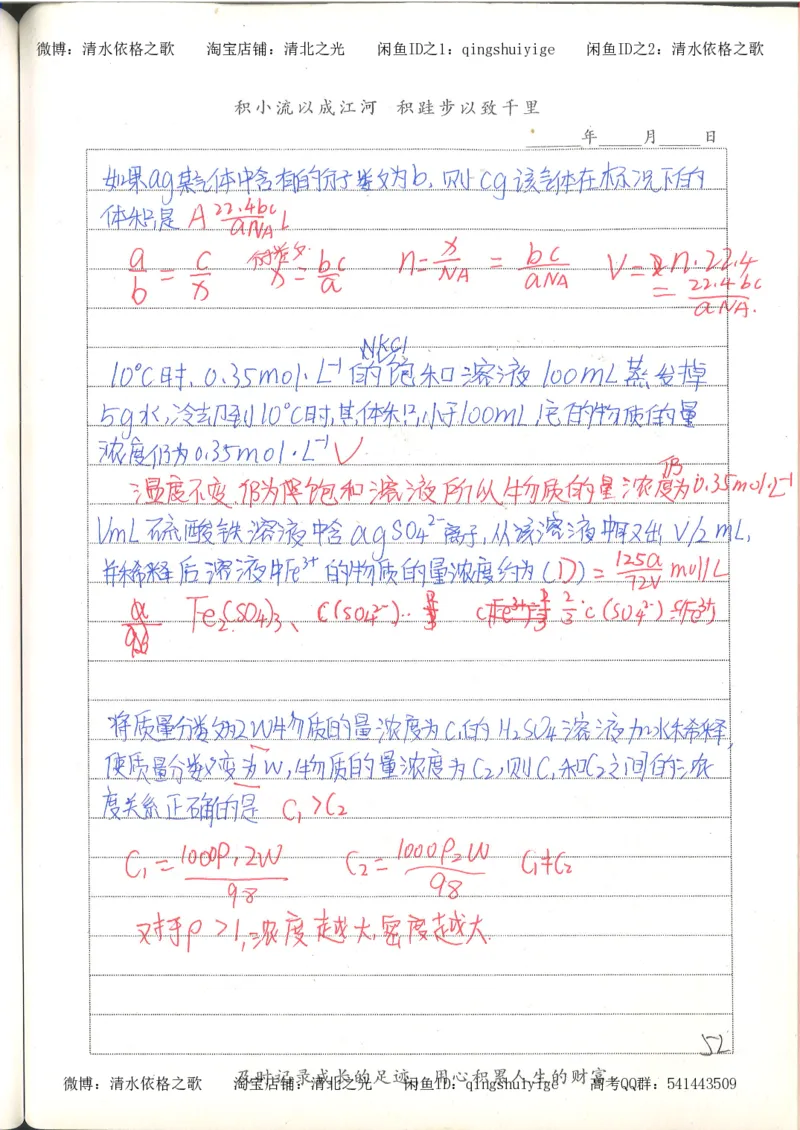 微博：清水依格之歌 淘宝店铺：清北之光 闲鱼ID之1：qingshuiyige 闲鱼ID之2：清水依格之歌
积小流以成江河 积跬步以致千里
年 月 日
如果ag某气体中含有的分子数为b,则cg该气体在标况下的
体积是 A 22.4bc/aNA L
a/b = c/x 分子数 x = bc/a n = x/NA = bc/aNA V = n·22.4
= 22.4bc/aNA.
NKCl
10℃时,0.35mol·L⁻¹的饱和溶液100mL蒸发掉
5g水,冷却到10℃时,其体积小于100mL,它的物质的量
浓度仍为0.35mol·L⁻¹ √
温度不变,仍为饱和溶液所以物质的量浓度仍为0.35mol·L⁻¹
VmL硫酸铁溶液中含agSO₄²⁻离子,从该溶液中取出V/2mL,
并稀释后溶液中Fe³⁺的物质的量浓度约为(D) = 125a/72V mol/L
Fe₂(SO₄)₃、 c(SO₄²⁻) 2/3·c(SO₄²⁻)
将质量分数为2W物质的量浓度为C₁的H₂SO₄溶液加水稀释,
使质量分数变为W,物质的量浓度为C₂,则C₁和C₂之间的浓
度关系正确的是 C₁>C₂
C₁ = 1000ρ₁2W/98 C₂ = 1000ρ₂W/98 C₁≠C₂
对于ρ>1,浓度越大,密度越大.
52
及时记录成长的足迹 用心积累人生的财富
微博：清水依格之歌 淘宝店铺：清北之光 闲鱼ID：qingshuiyige 高考QQ群：541443509